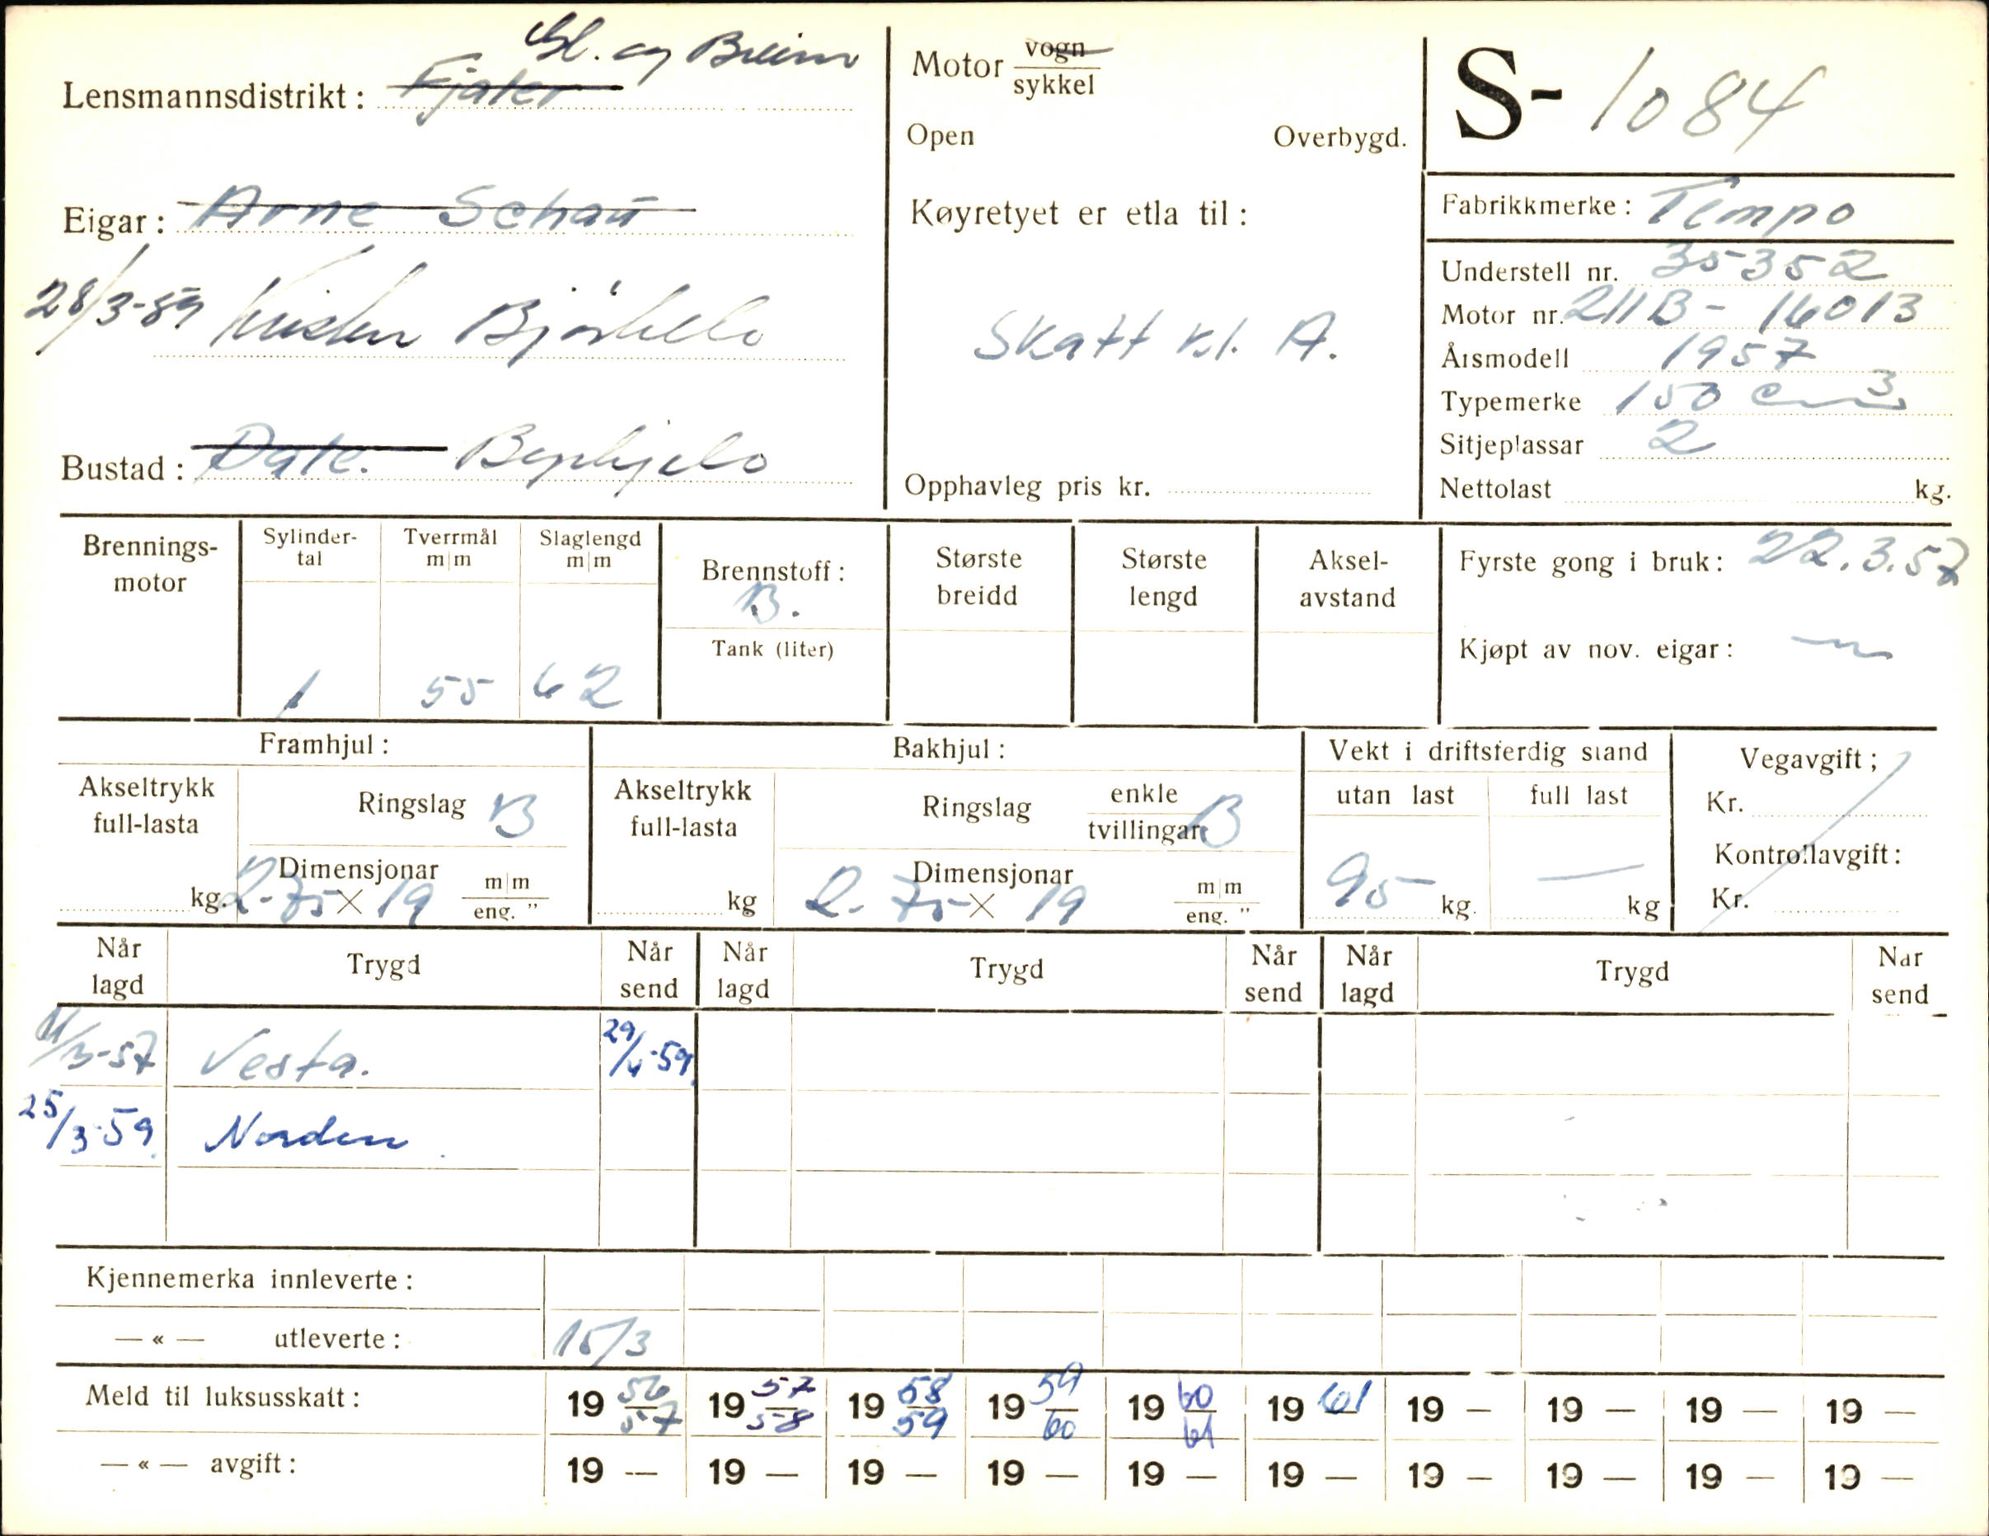 Gl. og Breim
Lensmannsdistrikt: Fjaler
Eigar: Arne Schau
28/3-59 Kristen Bjørkelo
Bustad: Dale. Byrkjelo
Motor vogn
sykkel
Open Overbygd.
Køyretyet er etla til:
Skatt kl. A.
Opphavleg pris kr.
S- 1084
Fabrikkmerke: Tempo
Understell nr. 35352
Motor nr. 211B - 16013
Årsmodell 1957
Typemerke 150 cm3
Sitjeplassar 2
Nettolast kg.
Brennings-
motor
Sylinder-
tal
1
Tverrmål
m|m
55
Slaglengd
m|m
62
Brennstoff:
B.
Tank (liter)
Største
breidd
Største
lengd
Aksel-
avstand
Fyrste gong i bruk: 22.3.57
Kjøpt av nov. eigar:
Framhjul:
Akseltrykk
full-lasta
kg.
Ringslag B
Dimensjonar
2-75 × 19 m|m
eng. "
Bakhjul:
Akseltrykk
full-lasta
kg
Ringslag enkle
tvillingar B
Dimensjonar
2-75 × 19 m|m
eng. "
Vekt i driftsferdig stand
utan last full last
95 kg. — kg
Vegavgift;
Kr.
Kontrollavgift:
Kr.
Når
lagd Trygd Når
send Når
lagd Trygd Når
send Når
lagd Trygd Når
send
11/3-57 Vesta. 29/4-59
25/3-59 Norden
Kjennemerka innleverte:
— « — utleverte: 15/3
Meld til luksusskatt: 19 56/57 19 57/58 19 58/59 19 59/60 19 60/61 19 61 19 — 19 — 19 — 19 —
— « — avgift: 19 — 19 — 19 — 19 — 19 — 19 — 19 — 19 — 19 — 19 —